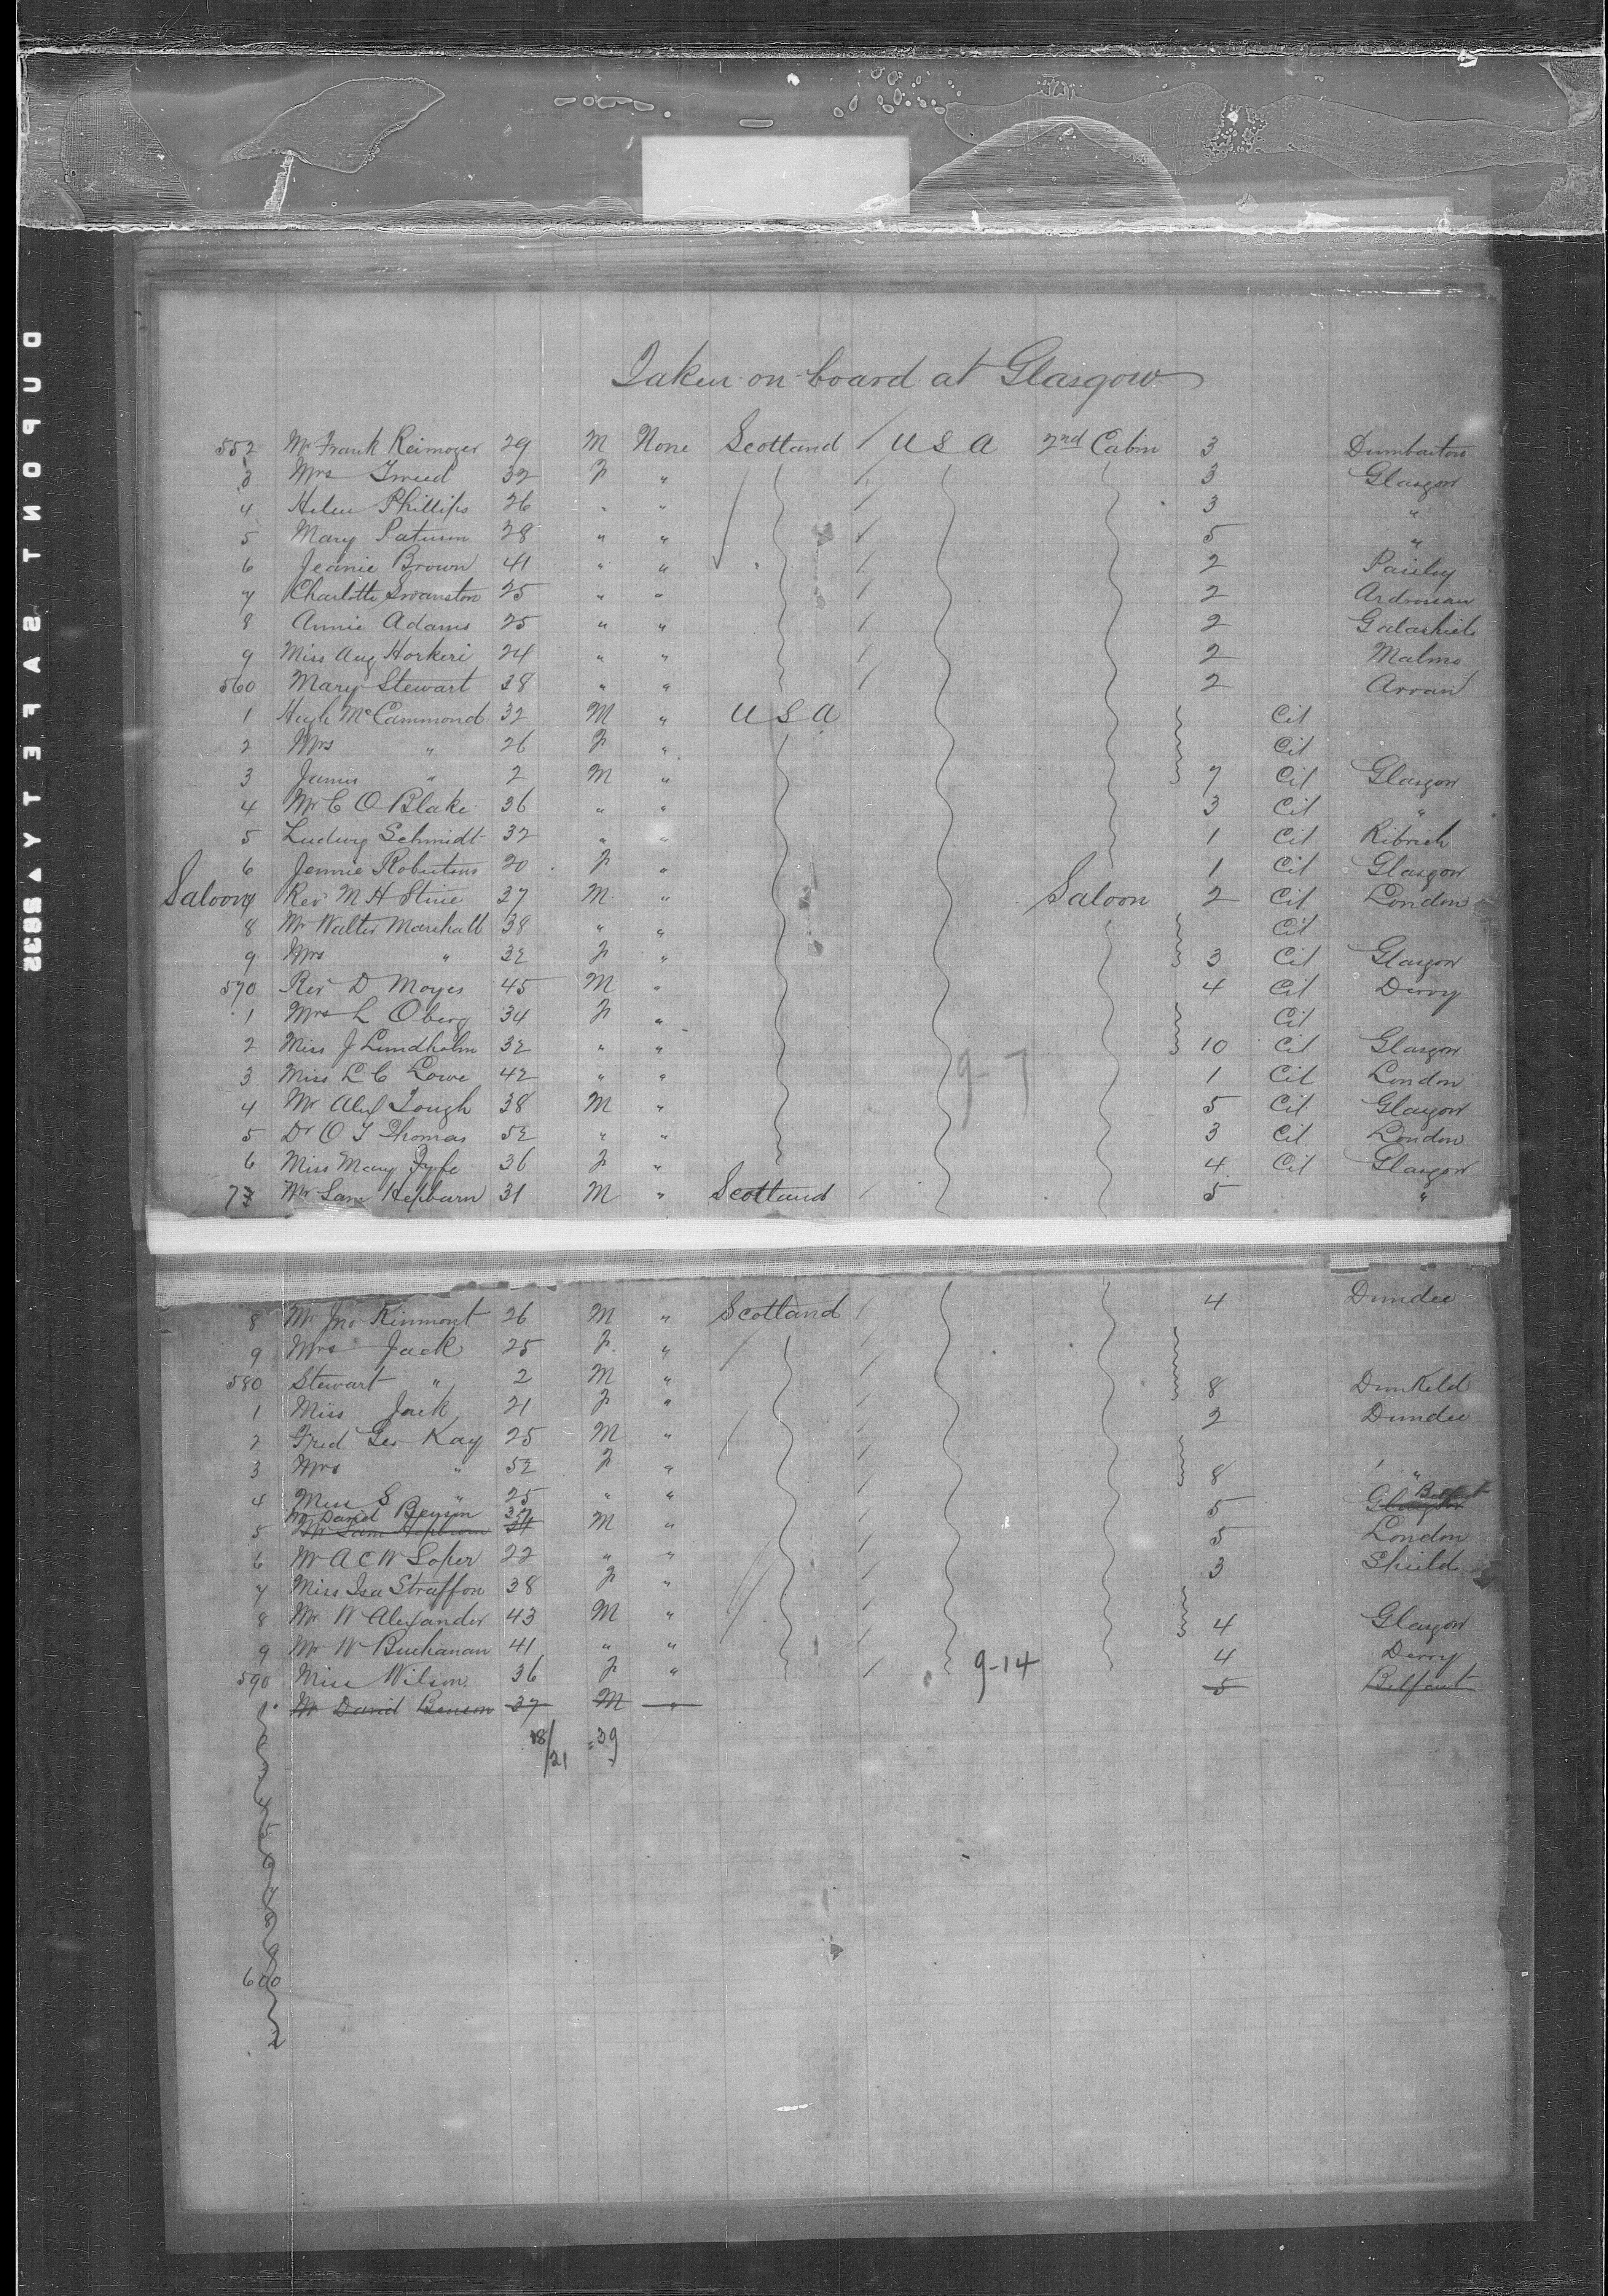 DUPONT SAFETY 3832
Taken on board at Glasgow
552 Mr Frank Reimoger 29 M None Scotland / U S A 2nd Cabin 3 Dumbarton
3 Mrs Tweed 32 F " / 3 Glasgow
4 Helen Phillips 26 " " / 3 "
5 Mary Paturson 28 " " / 5 "
6 Jeanie Brown 41 " " / 2 Paisley
7 Charlotte Swanston 25 " " / 2 Ardrossan
8 Annie Adams 25 " " / 2 Galashiels
9 Miss Aug Horkeri 24 " " / 2 Malmo
560 Mary Stewart 38 " " / 2 Arran
1 Hugh McCammond 32 M " U S A Cit
2 Mrs " 26 F " Cit
3 James " 2 M " 7 Cit Glasgow
4 Mr C O Blake 36 " " 3 Cit "
5 Ludwig Schmidt 32 " " 1 Cit
6 Jennie Robertson 20 F " 1 Cit Glasgow
Saloon 7 Rev M H Stine 37 M " Saloon 2 Cit London
8 Mr Walter Marshall 38 " " Cit
9 Mrs " 32 F " 3 Cit Glasgow
570 Rev D Moyes 45 M " 4 Cit Derry
1 Mrs L Oberg 34 F " Cit
2 Miss J Lundholm 32 " " 10 Cit Glasgow
3 Miss L C Lowe 42 " " 1 Cit London
9-7
4 Mr Alex Tough 38 M " 5 Cit Glasgow
5 Dr O T Thomas 52 " " 3 Cit London
6 Miss Mary Fyfe 36 F " 4 Cit Glasgow
77 Mr Sam Hepburn 31 M " Scotland / 5 "
8 Mr Jno Kinmont 26 M " Scotland / 4 Dundee
9 Mrs Jack 25 F "
580 Stewart " 2 M " 8 Dunkeld
1 Miss Jack 21 F " 2 Dundee
2 Fred Geo Kay 25 M "
3 Mrs " 52 F " 8 "
4 Miss S " 25 " " 5 Glasgow Belfast
Mr David Benson 37
5 Mr Sam Hepburn 31 M " 5 London
6 Mr A C W Soper 22 " " 3 Shield
7 Miss Isa Straffon 38 F "
8 Mr W Alexander 43 M " 4 Glasgow
9 Mr W Buchanan 41 " " 4 Derry
590 Miss Wilson 36 F " 9-14 5 Belfast
1 Mr David Benson 37 M "
18/21 = 39
2
3
4
5
6
7
8
9
600
1
2